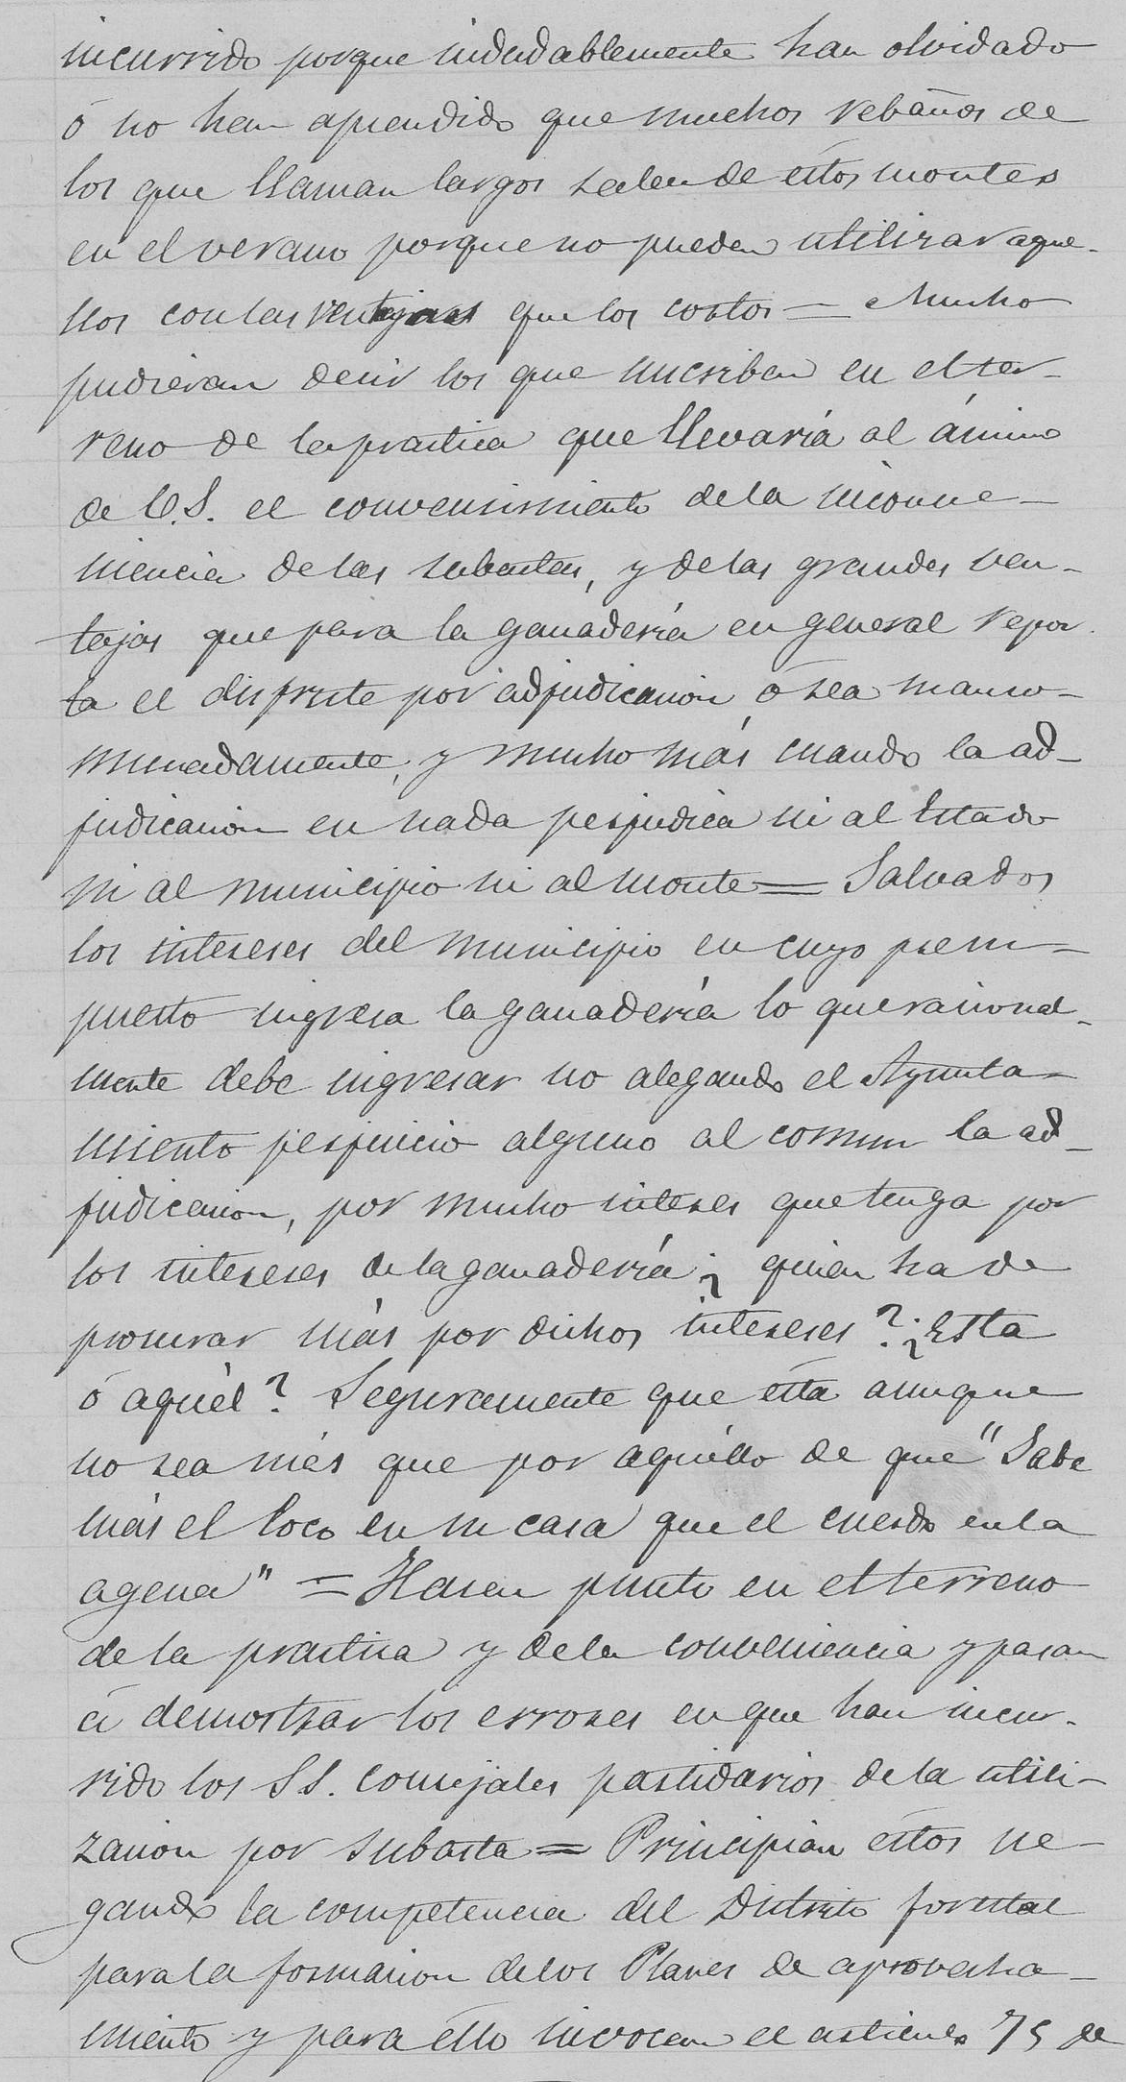 incurrido porque indudablemente han olvidado
ó no han aprendido que muchos rebaños de
los que llaman largos salen de éstos montes
en el verano porque no pueden utilizar aque-
llos con las ventajas que los cortos = Mucho
pudieran decir los que suscriben en el ter-
reno de la practica que llevaría al ánimo
de V.S. el convensimiento de la inconve-
niencia de las subastas, y de las grandes ven-
tajas que para la ganadería en general repor-
ta el disfrute por adjudicacion, ó sea manco-
munadamente, y mucho más cuando la ad-
judicacion en nada perjudica ni al Estado
ni al municipio ni al monte = Salvados
los intereses del municipio en cuyo presu-
puesto ingresa la ganadería lo que racional-
mente debe ingresar no alegando el Ayunta-
miento perjuicio alguno al comun la ad-
judicacion, por mucho interes que tenga por
los intereses de la ganadería ¿ quien ha de
procurar más por dichos intereses? ¿Esta
ó aquél? Seguramente que ésta aunque
no sea más que por aquéllo de que "Sabe
más el loco en su casa que el cuerdo en la
agena" = Hasen punto en el terreno
de la practica y de la conveniencia y pasan
á demostrar los errores en que han incur-
rido los SS. consejales partidarios de la utili-
zacion por subasta = Principian éstos ne-
gando la competencia del Distrito forestal
para la formacion de los Planes de aprovecha-
miento y para éllo invocan el articulo 75 de